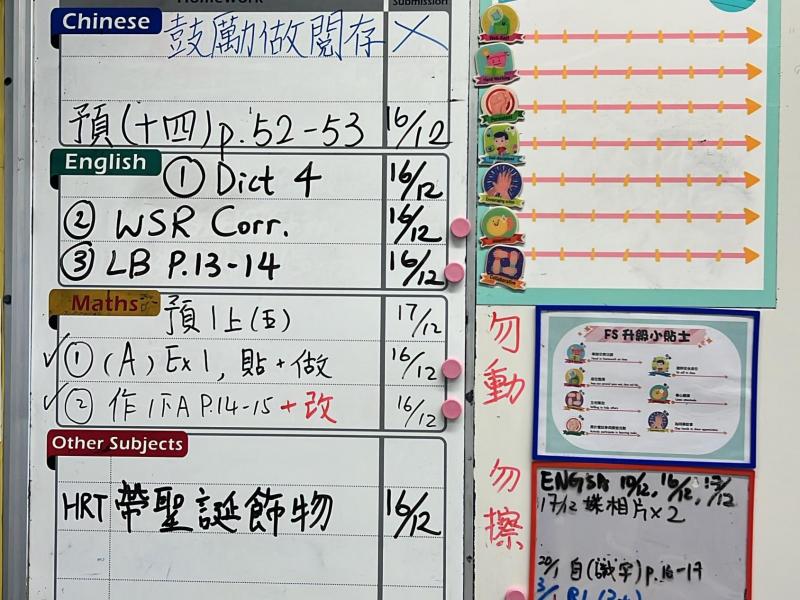 Homework Submission
Chinese 鼓勵做閱存 X
預(十四)p.52-53 16/12
English ① Dict 4 16/12
② WSR Corr. 16/12
③ LB P.13-14 16/12
Maths 預1上(五) 17/12
① (A) Ex 1, 貼+做 16/12
② 作1下A P.14-15 +改 16/12
Other Subjects
HRT 帶聖誕飾物 16/12
勿動
勿擦
FS 升級小貼士
17/12 相片×2
20/1 自(識字)p.16-17